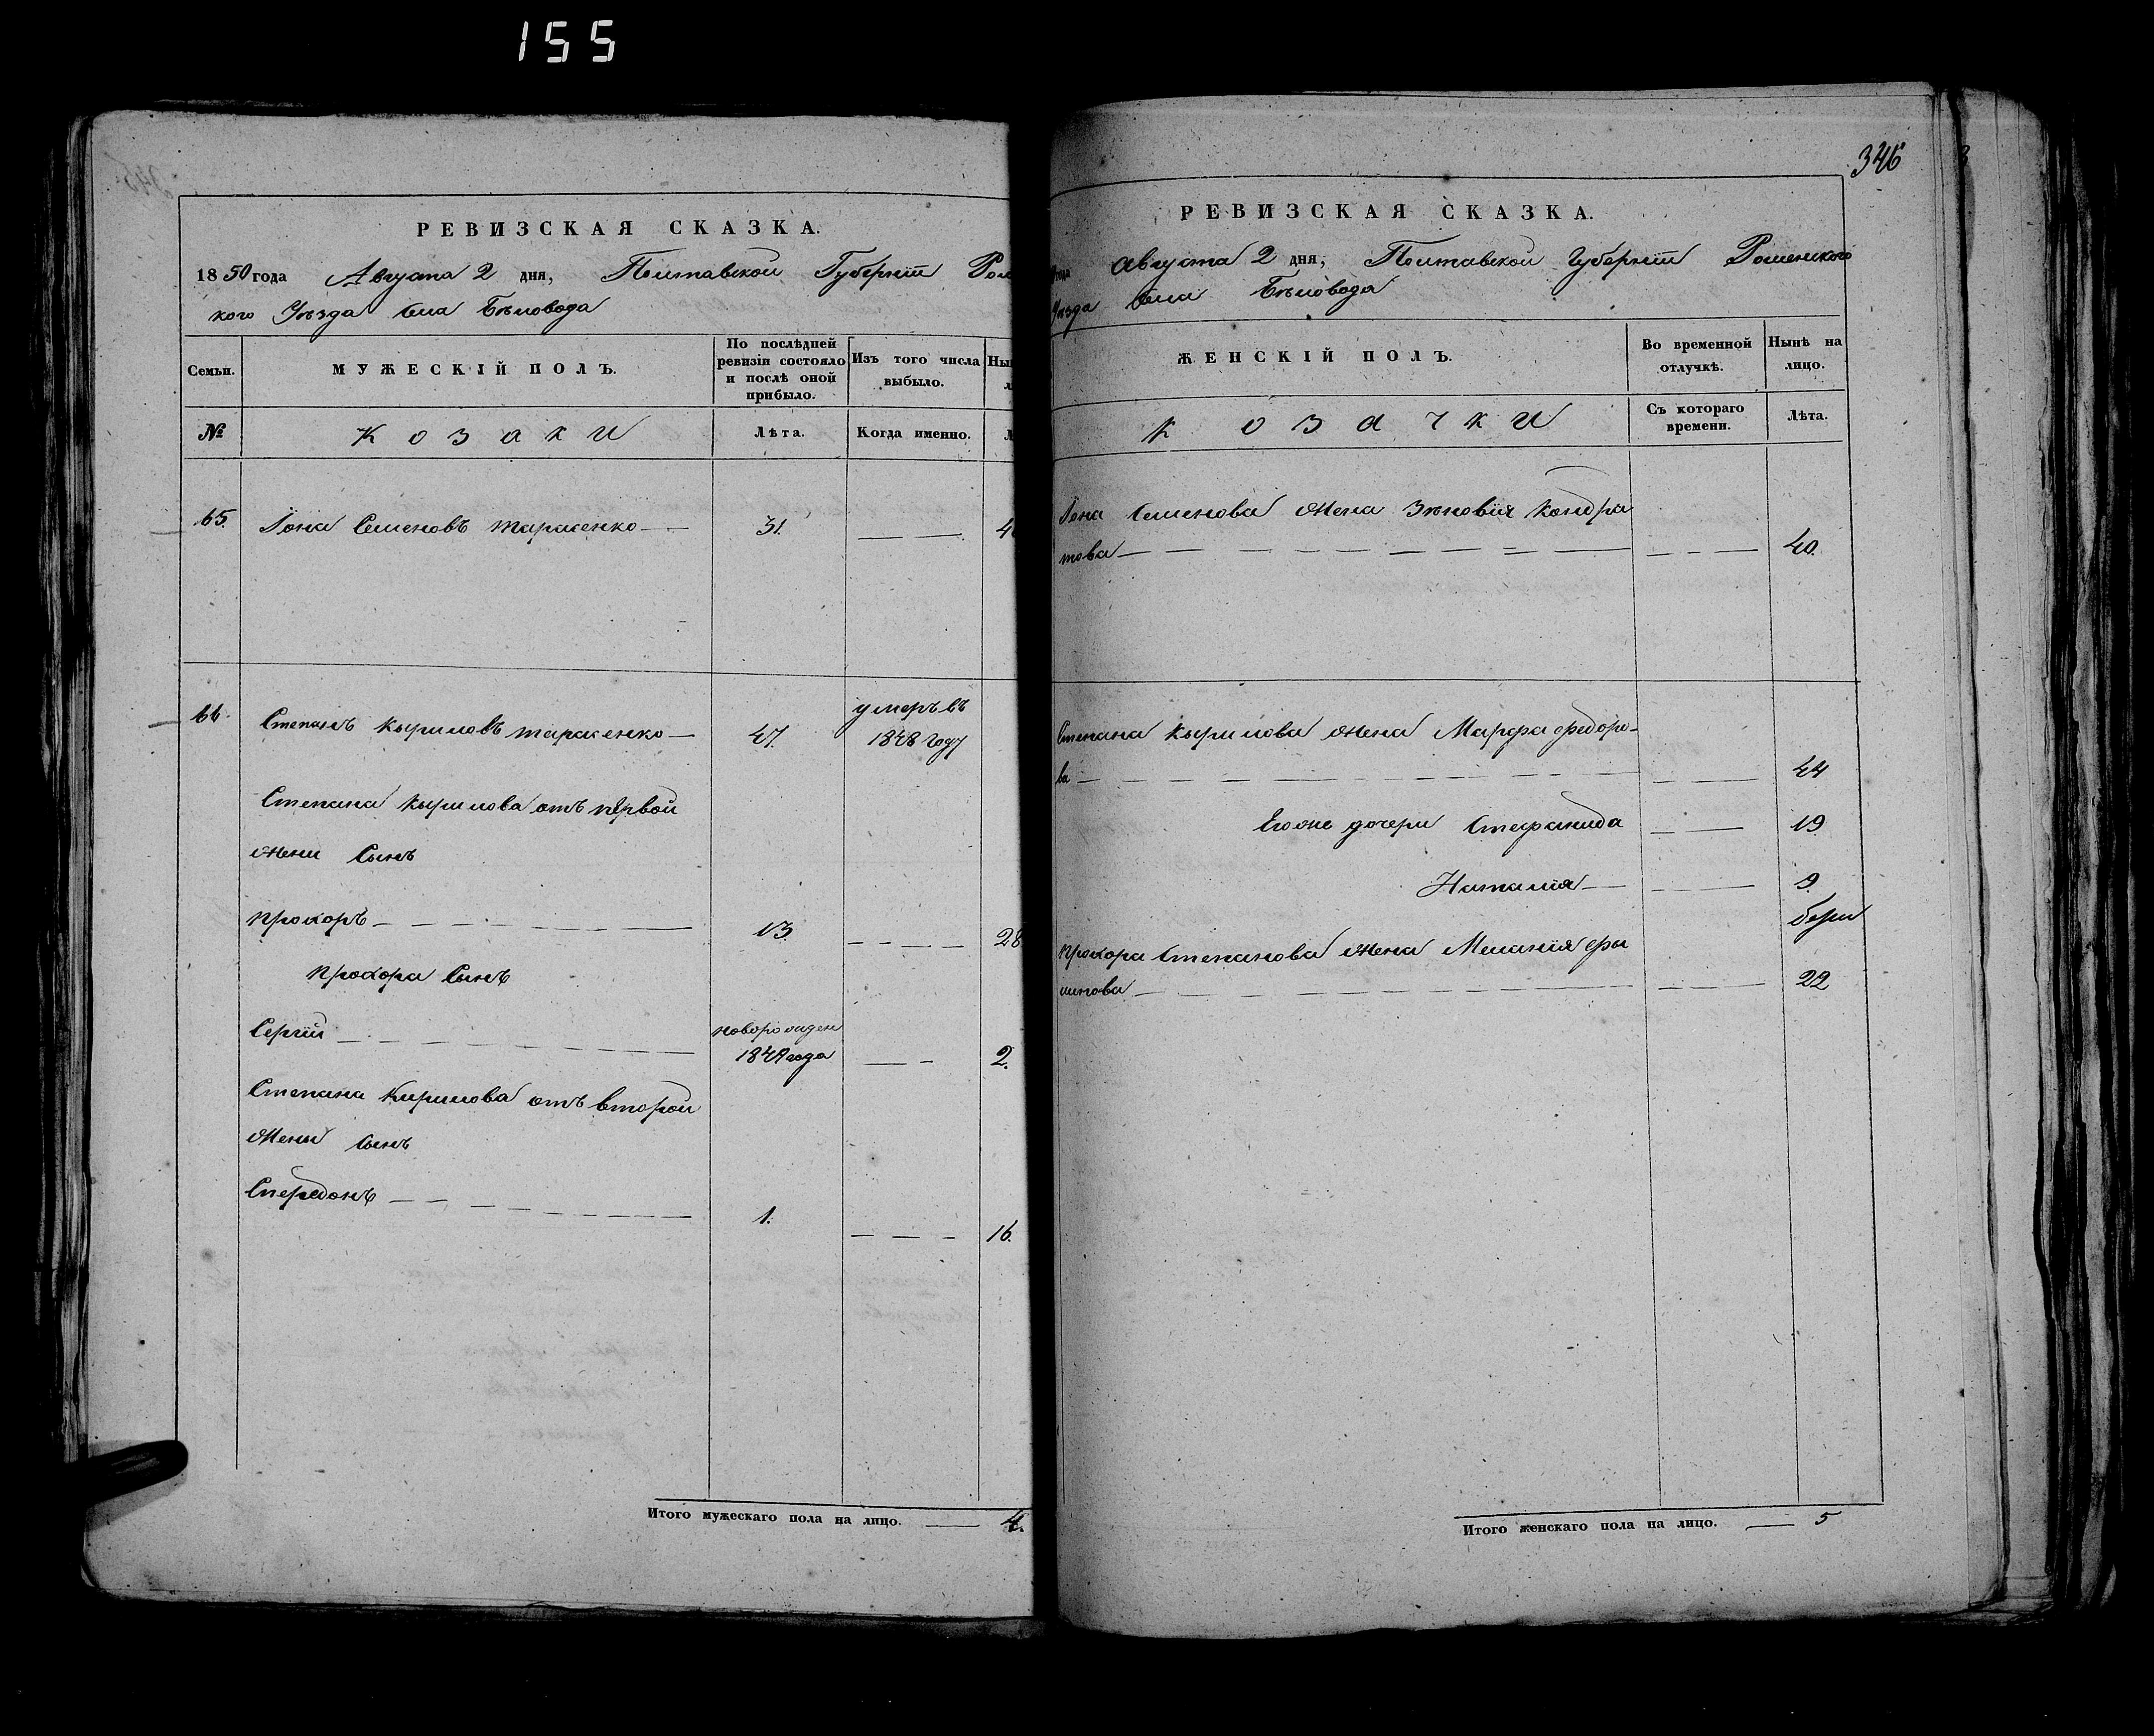 155
РЕВИЗСКАЯ СКАЗКА.
1850 года Августа 2 дня, Полтавской Губернiи Ром
кого Уѣзда Села Бѣловода
Семьи.
МУЖЕСКIЙ ПОЛЪ.
По послѣдней
ревизiи состояло
и послѣ оной
прибыло.
Изъ того числа
выбыло.
№
Козаки
Лѣта.
Когда именно.
65. Iона Семеновъ Тарасенко 31.
66. Степанъ Кыриловъ Тарасенко 47. умеръ въ
1848 году
Степана Кырилова отъ первой
жени Сынъ
Прохоръ 13. 28
Прохора Сынъ
Сергiй новорожден
1849 года 2.
Степана Кирилова отъ второй
жены Сынъ
Спередонъ 1. 16.
Итого мужескаго пола на лицо. 4.
346
РЕВИЗСКАЯ СКАЗКА.
года Августа 2 дня, Полтавской Губернiи Роменского
Уезда Села Бѣловода
ЖЕНСКIЙ ПОЛЪ.
Во временной
отлучкѣ.
Нынѣ на
лицо.
Козачки
Съ котораго
времени.
Лѣта.
Iона Семенова жена Зѣновiя Кондра
това 40.
Степана Кырилова жена Марфа Федоро-
ва 44
Ево же дочери Стефанида 19
Наталiя 9.
Прохора Степанова жена Меланiя
22
Итого женскаго пола на лицо. 5